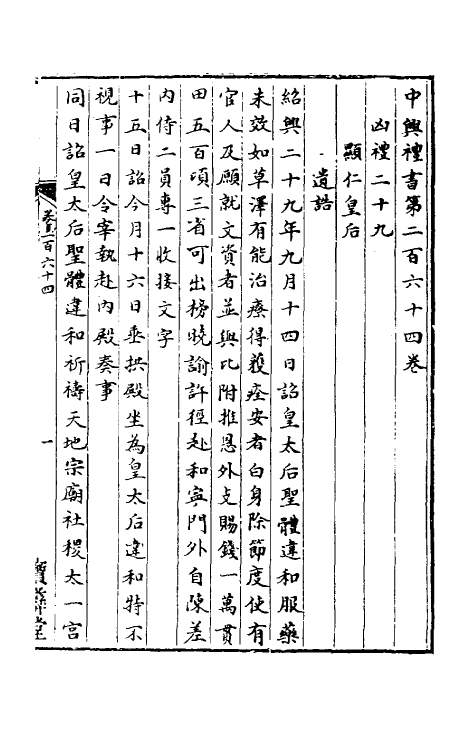 中興禮書第二百六十四卷
凶禮二十九
顯仁皇后
遺誥
紹興二十九年九月十四日詔皇太后聖體違和服藥
未效如草澤有能治療得獲痊安者白身除節度使有
官人及願就文資者並與比附推恩外支賜錢一萬貫
田五百頃三省可出榜曉諭許徑赴和寧門外自陳差
內侍二員專一收接文字
十五日詔今月十六日垂拱殿坐為皇太后違和特不
視事一日令宰執赴內殿奏事
同日詔皇太后聖體違和祈禱天地宗廟社稷太一宮
卷二百六十四
一
寶彝堂